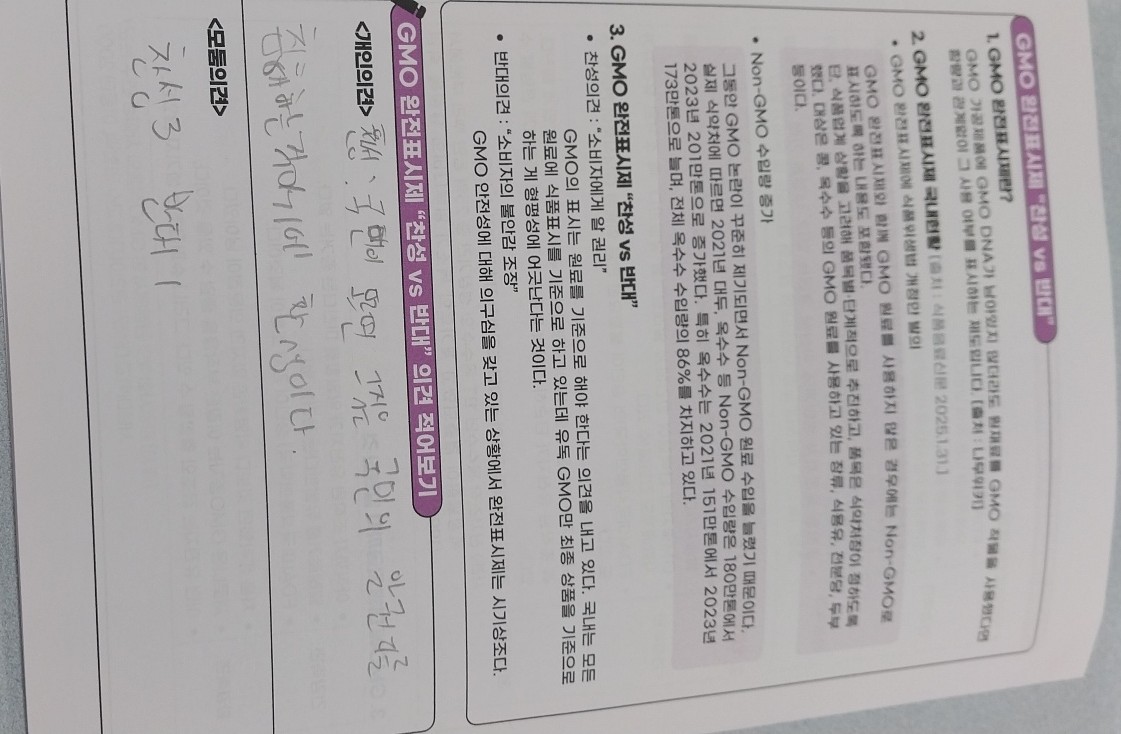 GMO 완전표시제 "찬성 vs 반대"
1. GMO 완전표시제란?
GMO 가공제품에 GMO DNA가 남아있지 않더라도 원재료를 GMO 작물을 사용했다면
함량과 관계없이 그 사용 여부를 표시하는 제도입니다. [출처 : 나무위키]
2. GMO 완전표시제 국내현황 [출처 : 식품음료신문 2025.1.31.]
• GMO 완전표시제에 식품위생법 개정안 발의
GMO 완전표시제와 함께 GMO 원료를 사용하지 않은 경우에는 Non-GMO로
표시하도록 하는 내용도 포함됐다.
단, 식품업계 상황을 고려해 품목별·단계적으로 추진하고, 품목은 식약처장이 정하도록
했다. 대상은 콩, 옥수수 등의 GMO 원료를 사용하고 있는 장류, 식용유, 전분당, 두부
등이다.
• Non-GMO 수입량 증가
그동안 GMO 논란이 꾸준히 제기되면서 Non-GMO 원료 수입을 늘렸기 때문이다.
실제 식약처에 따르면 2021년 대두, 옥수수 등 Non-GMO 수입량은 180만톤에서
2023년 201만톤으로 증가했다. 특히 옥수수는 2021년 151만톤에서 2023년
173만톤으로 늘며, 전체 옥수수 수입량의 86%를 차지하고 있다.
3. GMO 완전표시제 "찬성 vs 반대"
• 찬성의견 : "소비자에게 알 권리"
GMO의 표시는 원료를 기준으로 해야 한다는 의견을 내고 있다. 국내는 모든
원료에 식품표시를 기준으로 하고 있는데 유독 GMO만 최종 상품을 기준으로
하는 게 형평성에 어긋난다는 것이다.
• 반대의견 : "소비자의 불안감 조장"
GMO 안전성에 대해 의구심을 갖고 있는 상황에서 완전표시제는 시기상조다.
GMO 완전표시제 "찬성 vs 반대" 의견 적어보기
<개인의견> 찬성, 국민이 모면 그것은 국민의 알권리를
침해한거이기에 찬성이다.
<모둠의견>
찬성 3 반대 1